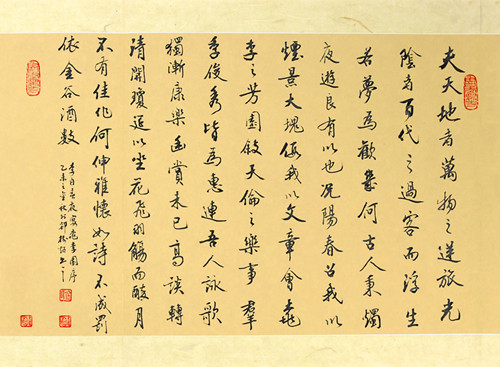 夫天地者萬物之逆旅光
陰者百代之過客而浮生
若夢為歡幾何古人秉燭
夜遊良有以也況陽春召我以
煙景大塊假我以文章會桃
李之芳園敘天倫之樂事羣
季俊秀皆為惠連吾人詠歌
獨漸康樂幽賞未已高談轉
清開瓊筵以坐花飛羽觴而醉月
不有佳作何伸雅懷如詩不成罰
依金谷酒數
李白春夜宴桃李園序
乙未之